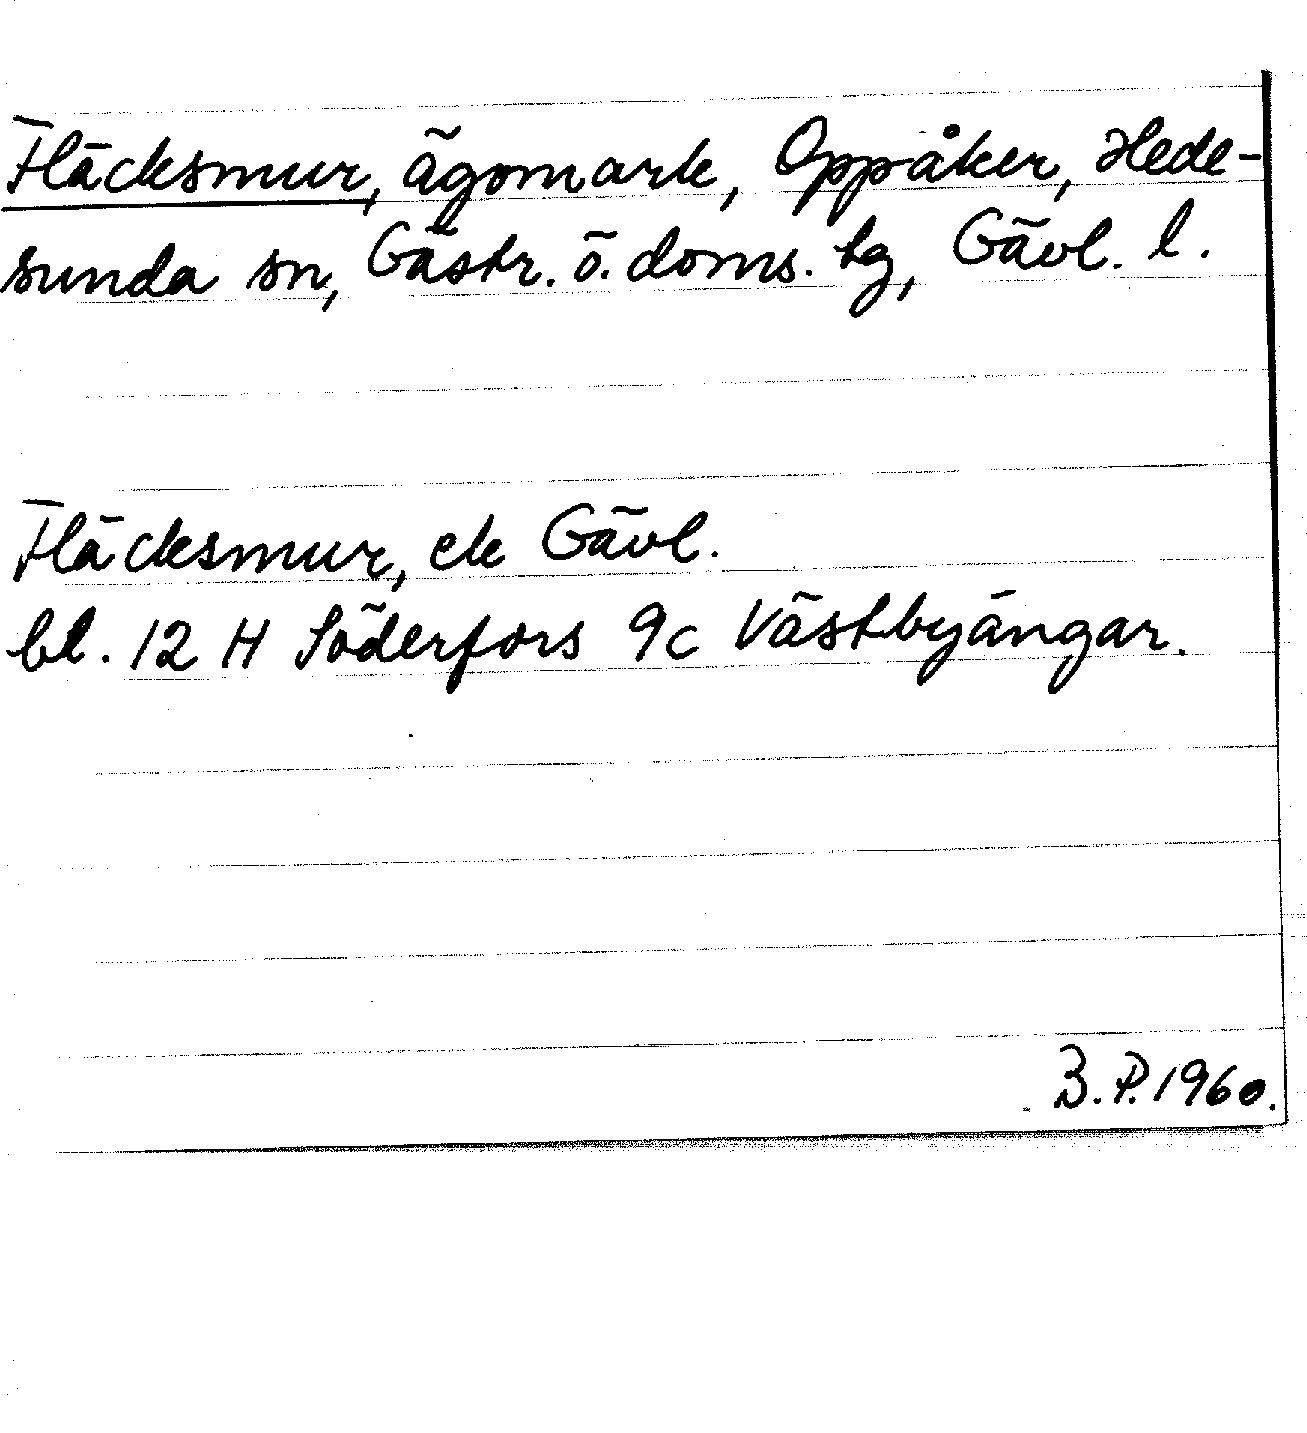 Fläcksmur, ägomark, Oppåker, Hede-
sunda sn, Gästr. ö. doms. tg, Gävl. l.
Fläcksmur, ek Gävl.
bl. 12 H Söderfors 9c Västbyängar.
B.P. 1960.